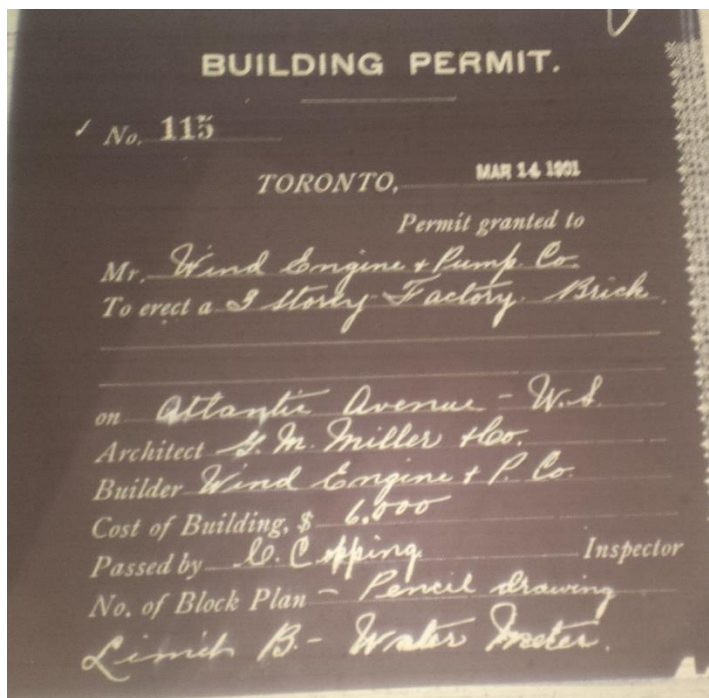 BUILDING PERMIT.
No. 115
TORONTO, MAR 14 1901
Permit granted to
Mr. Wind Engine + Pump Co.
To erect a 3 Storey Factory Brick
on Atlantic Avenue - W.S.
Architect G. M. Miller + Co.
Builder Wind Engine + P. Co.
Cost of Building, $ 6.000
Passed by Inspector
No. of Block Plan - Pencil drawing
Limit B. - Water Meter.